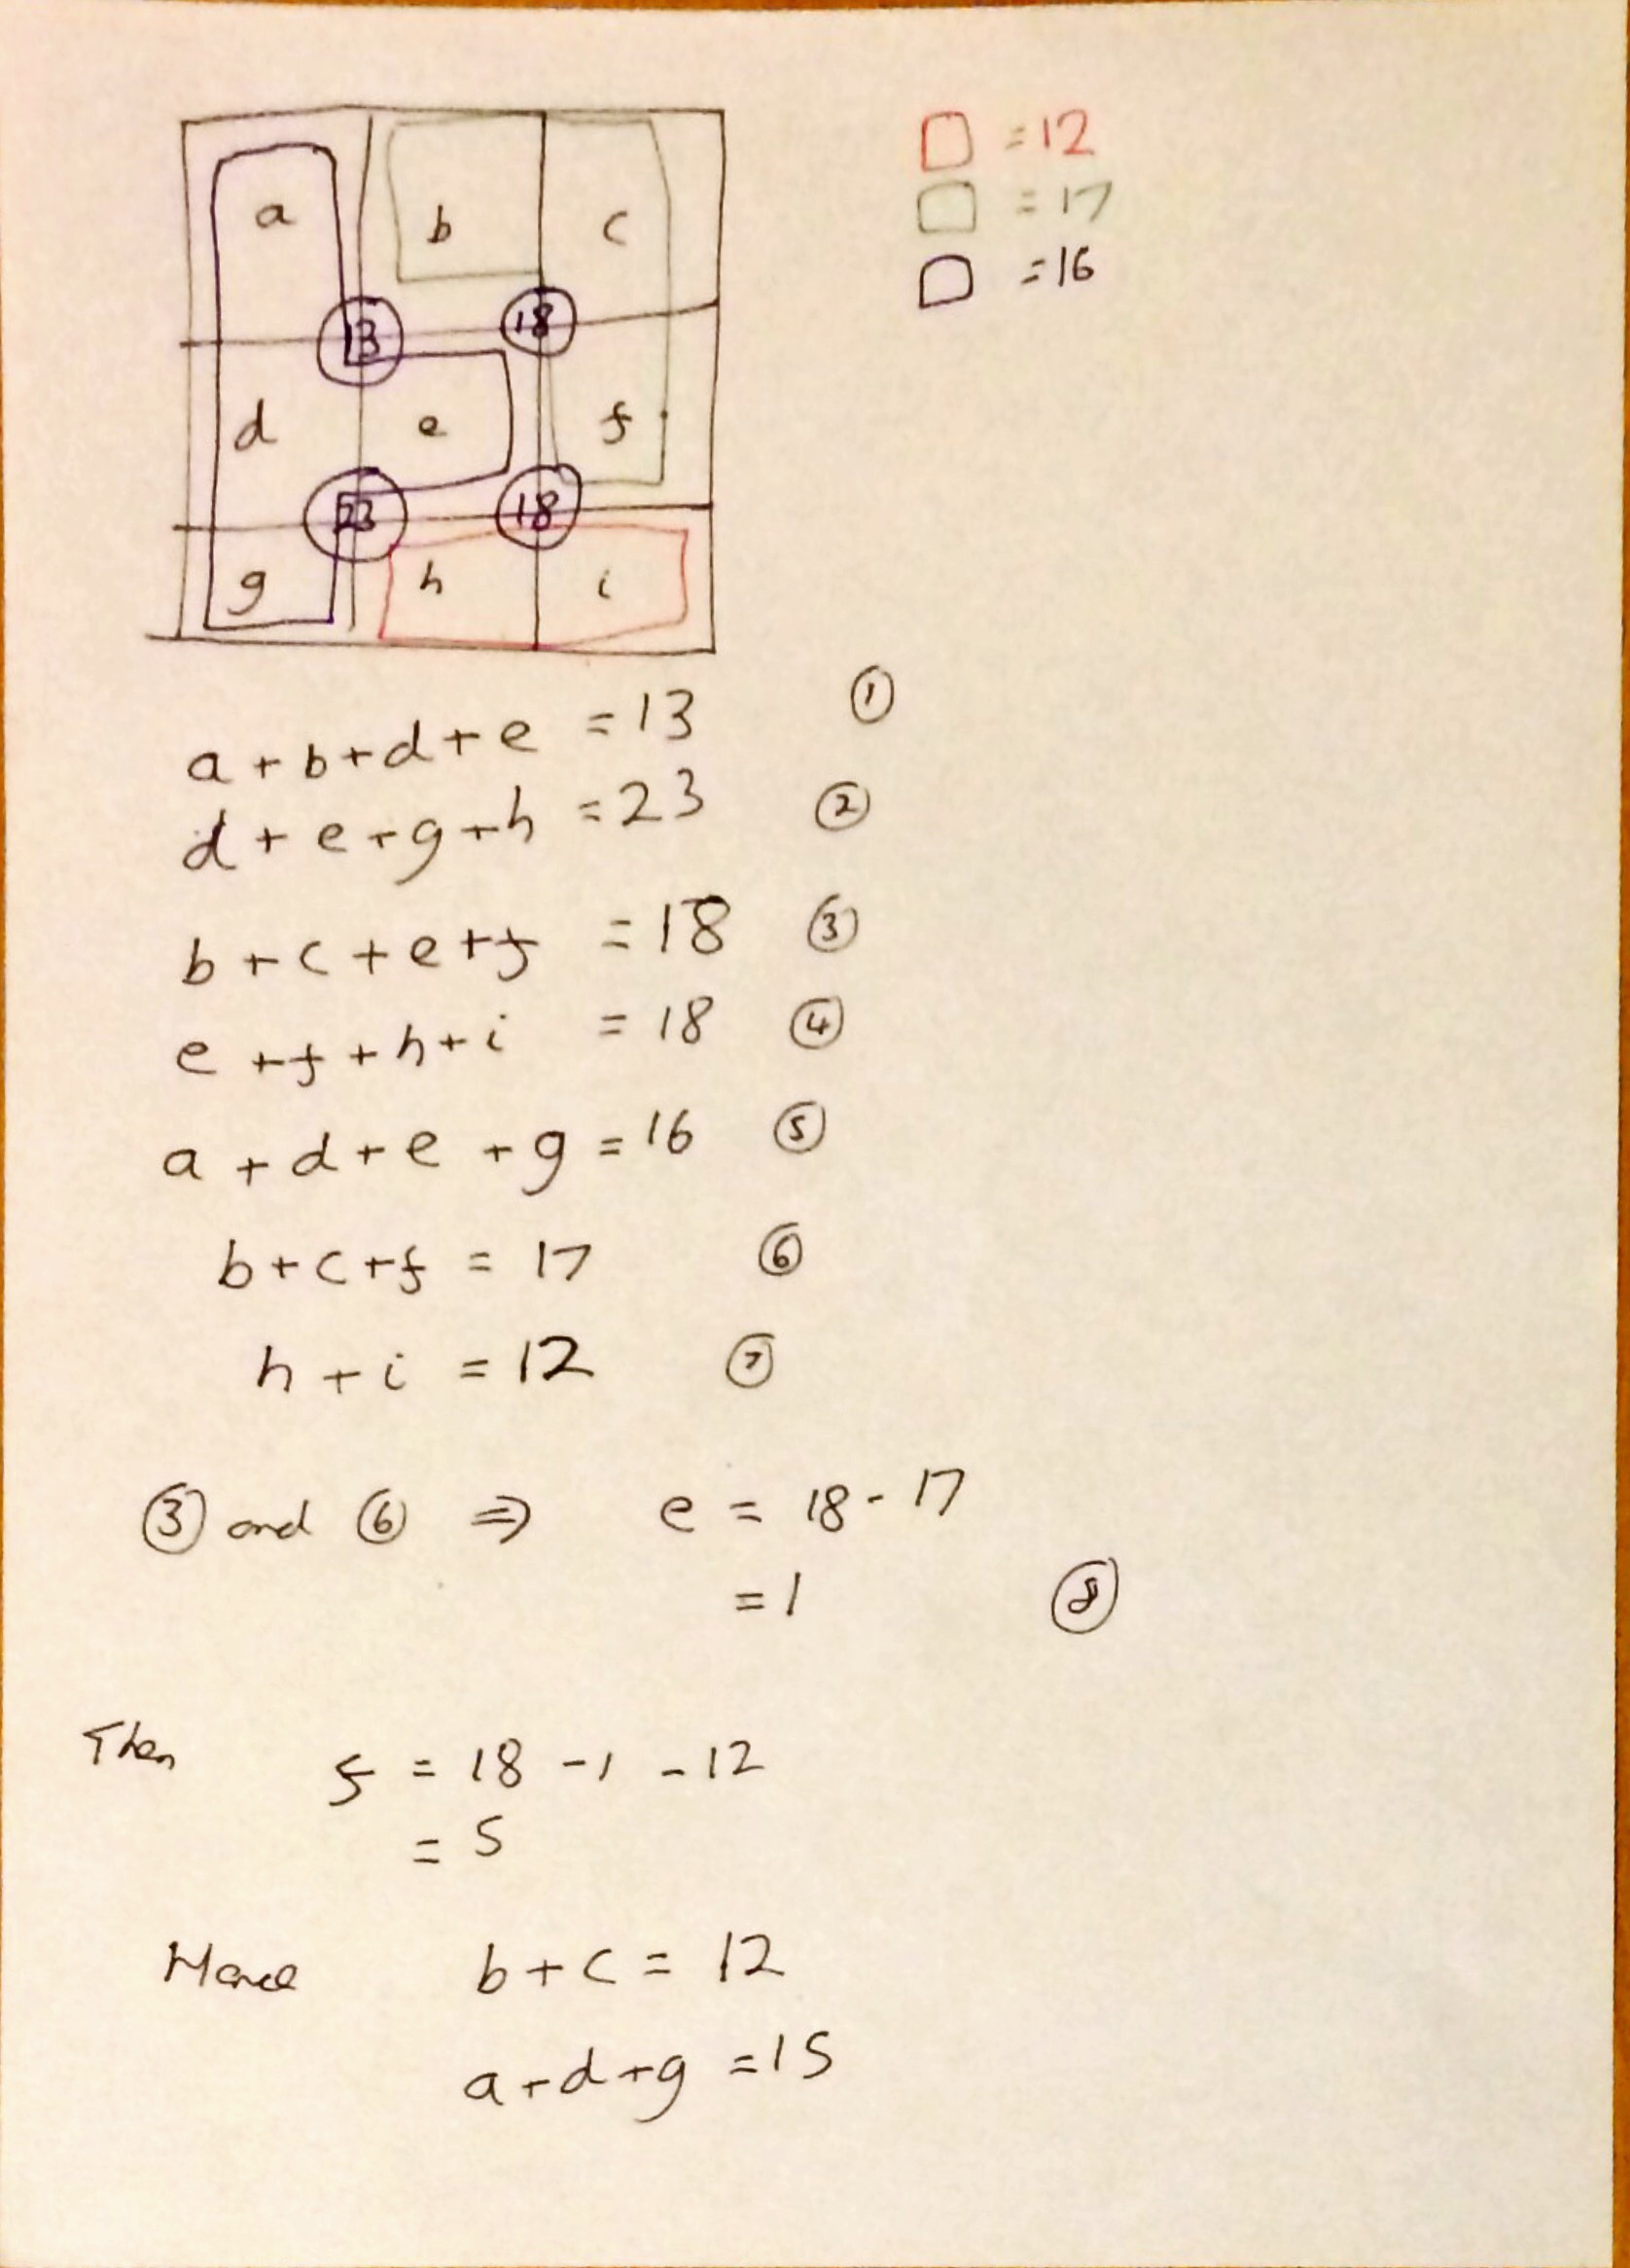 a b c
□ = 12
□ = 17
□ = 16
13 18
d e f
23 18
g h i
a + b + d + e = 13 ①
d + e + g + h = 23 ②
b + c + e + f = 18 ③
e + f + h + i = 18 ④
a + d + e + g = 16 ⑤
b + c + f = 17 ⑥
h + i = 12 ⑦
③ and ⑥ ⇒ e = 18 - 17
= 1 ⑧
Then f = 18 - 1 - 12
= 5
Hence b + c = 12
a + d + g = 15